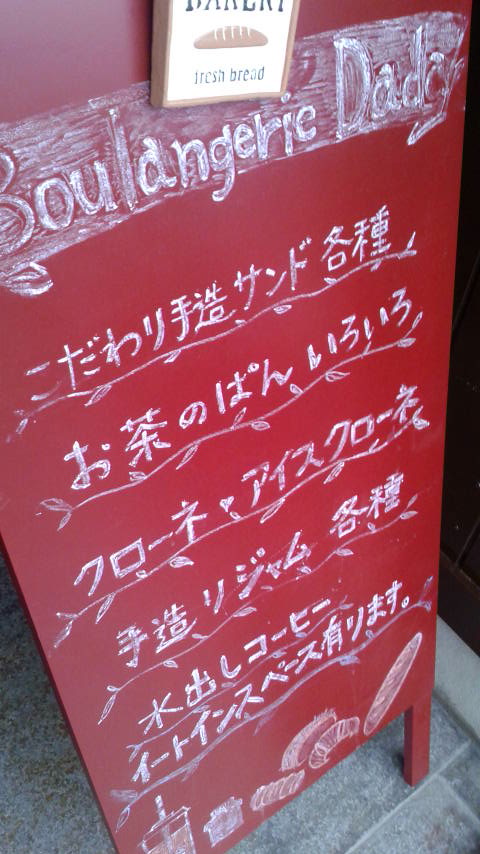 BAKERY
fresh bread
Boulangerie Dady
こだわり手造サンド各種
お茶のぱん いろいろ
クローネ・アイスクローネ
手造リジャム 各種
水出しコーヒー
イートインスペース有ります。